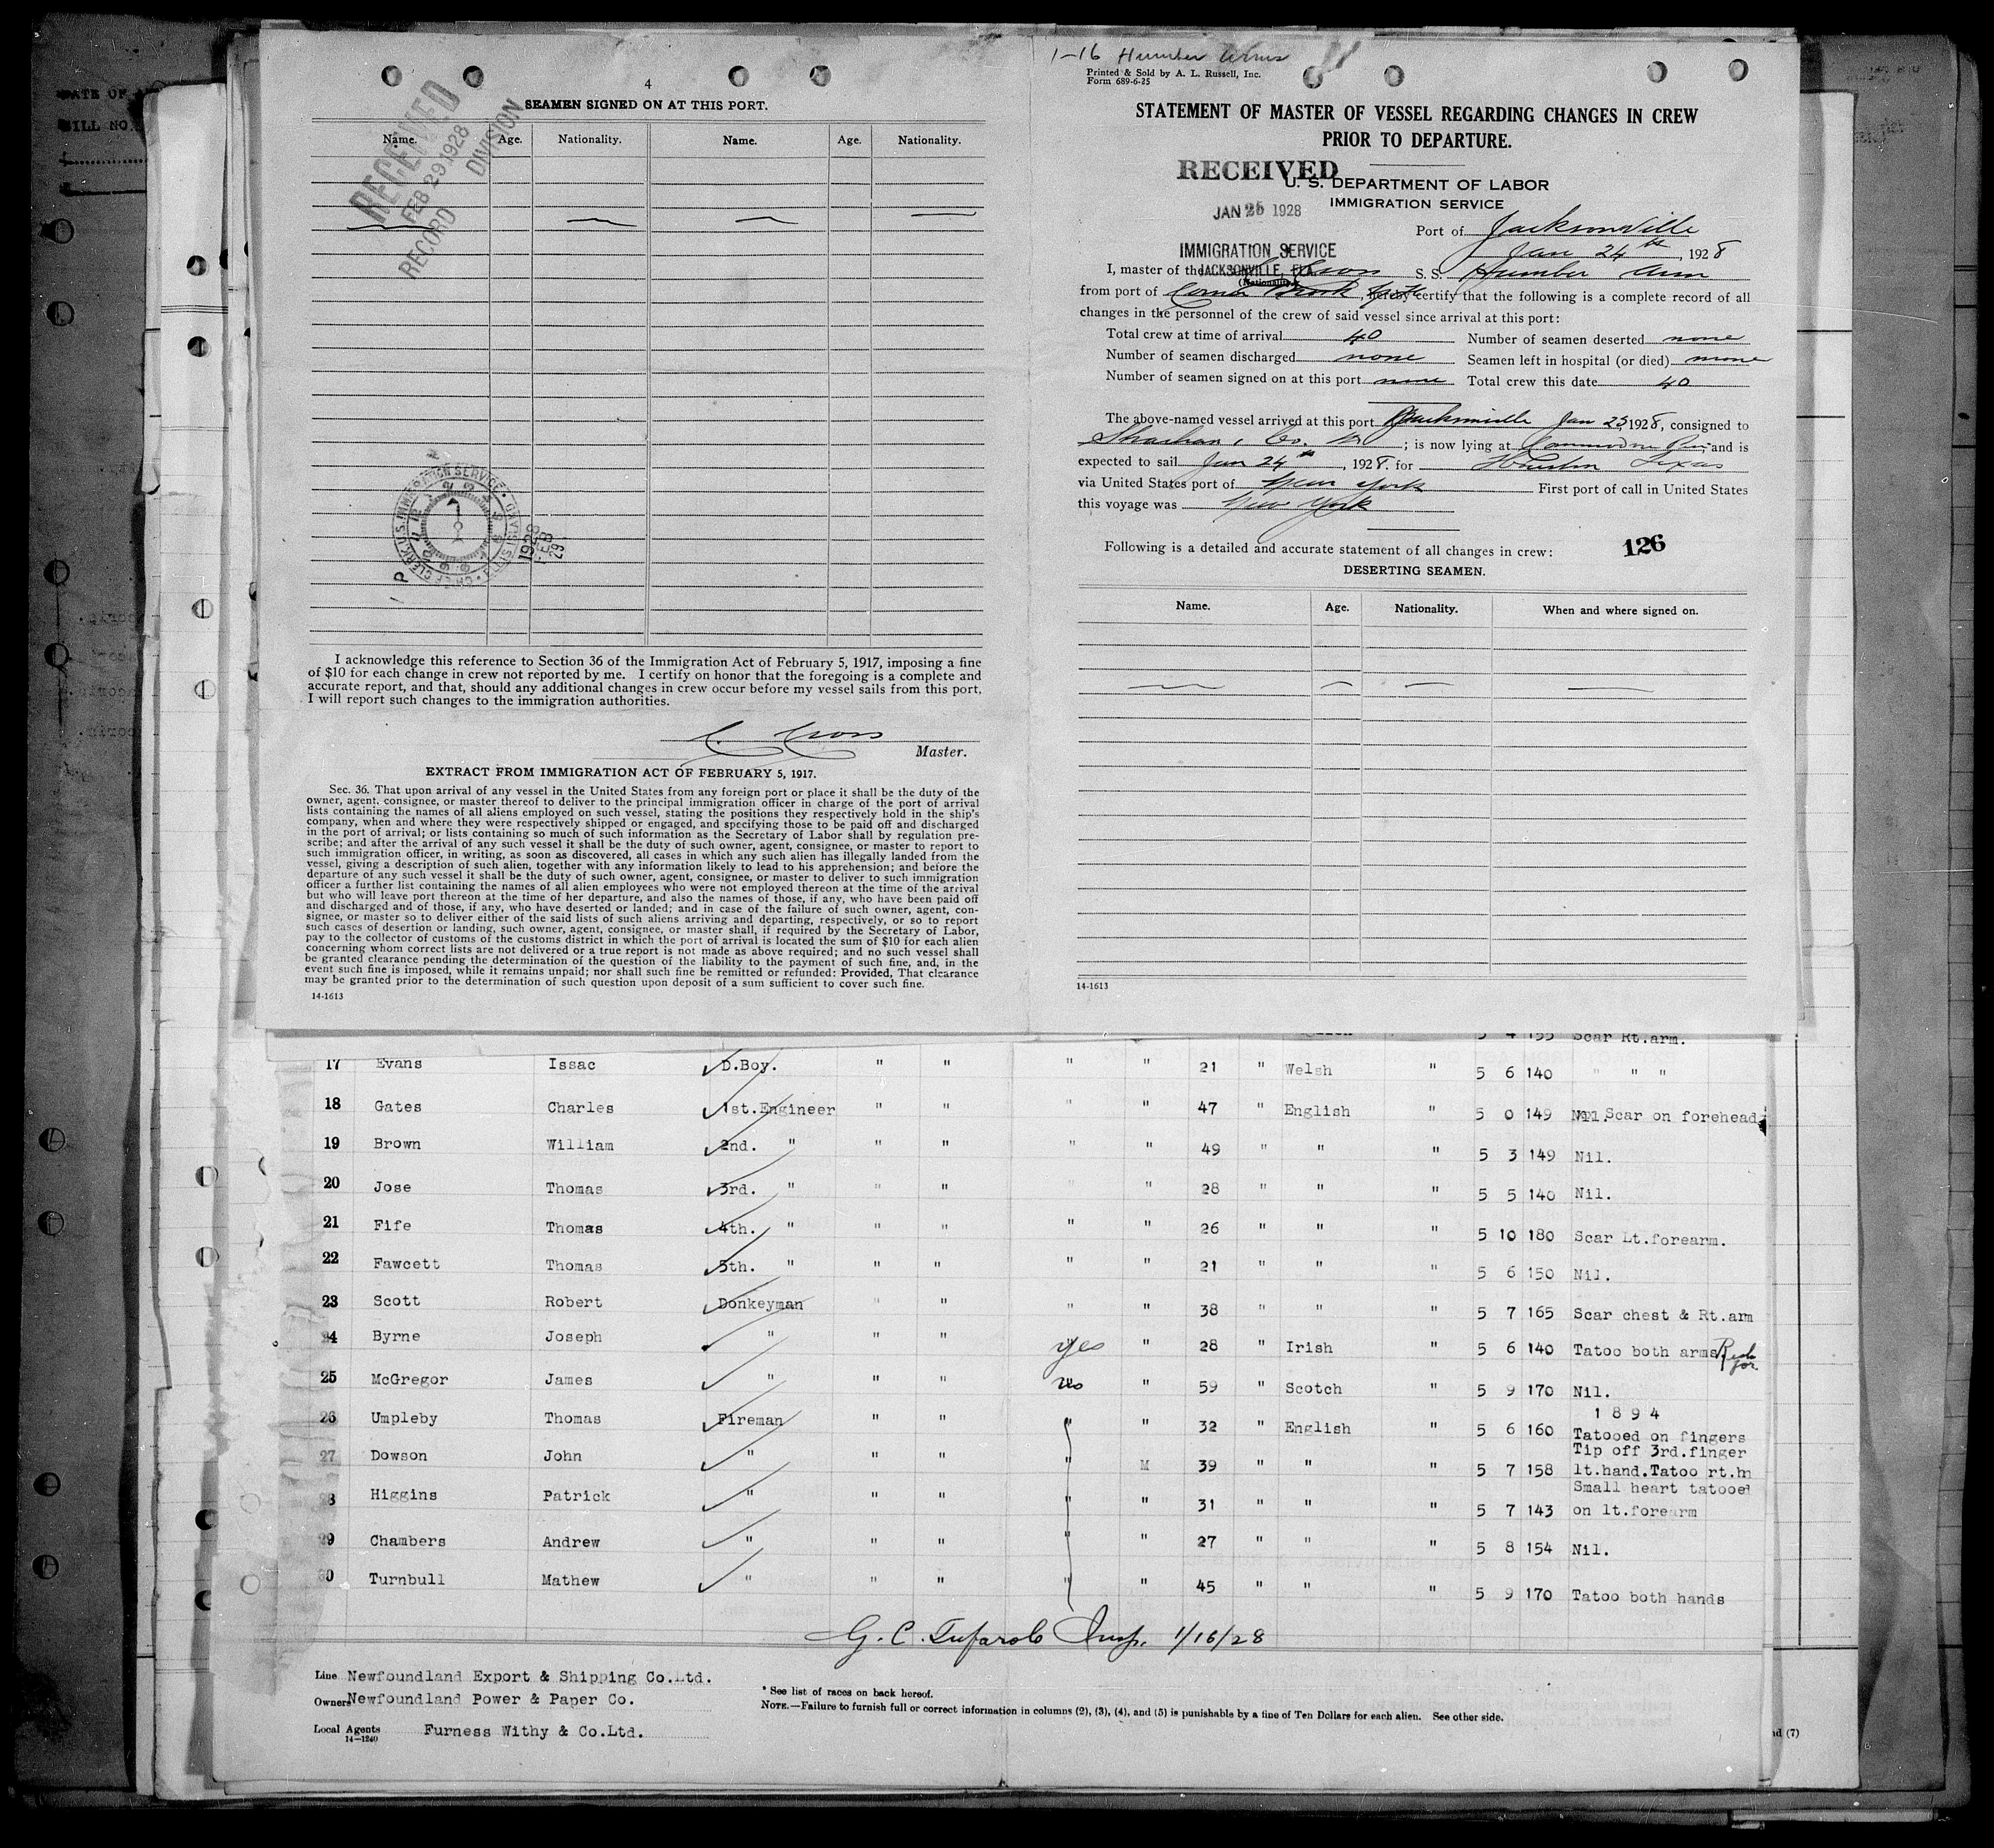 4
SEAMEN SIGNED ON AT THIS PORT.
Name. Age. Nationality. Name. Age. Nationality.
RECEIVED
FEB 29 1928
RECORD DIVISION
1928
FEB
29
I acknowledge this reference to Section 36 of the Immigration Act of February 5, 1917, imposing a fine
of $10 for each change in crew not reported by me. I certify on honor that the foregoing is a complete and
accurate report, and that, should any additional changes in crew occur before my vessel sails from this port,
I will report such changes to the immigration authorities.
C. Cross
Master.
EXTRACT FROM IMMIGRATION ACT OF FEBRUARY 5, 1917.
Sec. 36. That upon arrival of any vessel in the United States from any foreign port or place it shall be the duty of the
owner, agent, consignee, or master thereof to deliver to the principal immigration officer in charge of the port of arrival
lists containing the names of all aliens employed on such vessel, stating the positions they respertively hold in the ship's
company, when and where they were respectively shipped or engaged, and specifying those to be paid off and discharged
in the port of arrival; or lists containing so much of such information as the Secretary of Labor shall by regulation pre-
scribe; and after the arrival of any such vessel it shall be the duty of such owner, agent, consignee, or master to report to
such immigration officer, in writing, as soon as discovered, all cases in which any such alien has illegally landed from the
vessel, giving a description of such alien, together with any information likely to lead to his apprehension; and before the
departure of any such vessel it shall be the duty of such owner, agent, consignee, or master to deliver to such immigration
officer a further list containing the names of all alien employees who were not employed thereon at the time of the arrival
but who will leave port thereon at the time of her departure, and also the names of those, if any, who have been paid off
and discharged and of those, if any, who have deserted or landed; and in case of the failure of such owner, agent, con-
signee, or master so to deliver either of the said lists of such aliens arriving and departing, respectively, or so to report
such cases of desertion or landing, such owner, agent, consignee, or master shall, if required by the Secretary of Labor,
pay to the collector of customs of the customs district in which the port of arrival is located the sum of $10 for each alien
concerning whom correct lists are not delivered or a true report is not made as above required; and no such vessel shall
be granted clearance pending the determination of the question of the liability to the payment of such fine, and, in the
event such fine is imposed, while it remains unpaid; nor shall such fine be remitted or refunded: Provided, That clearance
may be granted prior to the determination of such question upon deposit of a sum sufficient to cover such fine.
14-1613
1-16 Humber Arm
Printed & Sold by A. L. Russell, Inc.
Form 689-6-25
STATEMENT OF MASTER OF VESSEL REGARDING CHANGES IN CREW
PRIOR TO DEPARTURE.
RECEIVED
U. S. DEPARTMENT OF LABOR
JAN 25 1928
IMMIGRATION SERVICE
Port of Jacksonville
IMMIGRATION SERVICE
JACKSONVILLE, FLA.
Jan 24th, 1928
I, master of the S. S. Humber Arm
(Nationality)
from port of Corner Brook, hereby certify that the following is a complete record of all
changes in the personnel of the crew of said vessel since arrival at this port:
Total crew at time of arrival 40 Number of seamen deserted none
Number of seamen discharged none Seamen left in hospital (or died) none
Number of seamen signed on at this port none Total crew this date 40
The above-named vessel arrived at this port Jacksonville Jan 23, 1928, consigned to
Strachan & Co.; is now lying at and is
expected to sail Jan 24th, 1928. for Houston Texas
via United States port of New York First port of call in United States
this voyage was New York
Following is a detailed and accurate statement of all changes in crew: 126
DESERTING SEAMEN.
Name. Age. Nationality. When and where signed on.
14-1613
5 4 155 Scar Rt.arm.
17 Evans Issac D.Boy. " " " " 21 " Welsh " 5 6 140 " " "
18 Gates Charles 1st.Engineer " " " " 47 " English " 5 0 149 Scar on forehead
19 Brown William 2nd. " " " " " 49 " " " 5 3 149 Nil.
20 Jose Thomas 3rd. " " " " " 28 " " " 5 5 140 Nil.
21 Fife Thomas 4th. " " " " " 26 " " " 5 10 180 Scar Lt.forearm.
22 Fawcett Thomas 5th. " " " " " 21 " " " 5 6 150 Nil.
23 Scott Robert Donkeyman " " " " 38 " " " 5 7 165 Scar chest & Rt.arm
24 Byrne Joseph " " " yes " 28 " Irish " 5 6 140 Tatoo both arms
25 McGregor James " " " " 59 " Scotch " 5 9 170 Nil.
26 Umpleby Thomas Fireman " " " " 32 " English " 5 6 160 1 8 9 4
Tatooed on fingers
27 Dowson John " " " " M 39 " " " 5 7 158 Tip off 3rd.finger
lt.hand.Tatoo rt.hn
28 Higgins Patrick " " " " " 31 " " " 5 7 143 Small heart tatooed
on lt.forearm
29 Chambers Andrew " " " " " 27 " " " 5 8 154 Nil.
30 Turnbull Mathew " " " " " 45 " " " 5 9 170 Tatoo both hands
G. C. Tufarolo Insp. 1/16/28
Line Newfoundland Export & Shipping Co.Ltd.
Owners Newfoundland Power & Paper Co.
Local Agents Furness Withy & Co.Ltd.
14-1240
* See list of races on back hereof.
NOTE.—Failure to furnish full or correct information in columns (2), (3), (4), and (5) is punishable by a fine of Ten Dollars for each alien. See other side.